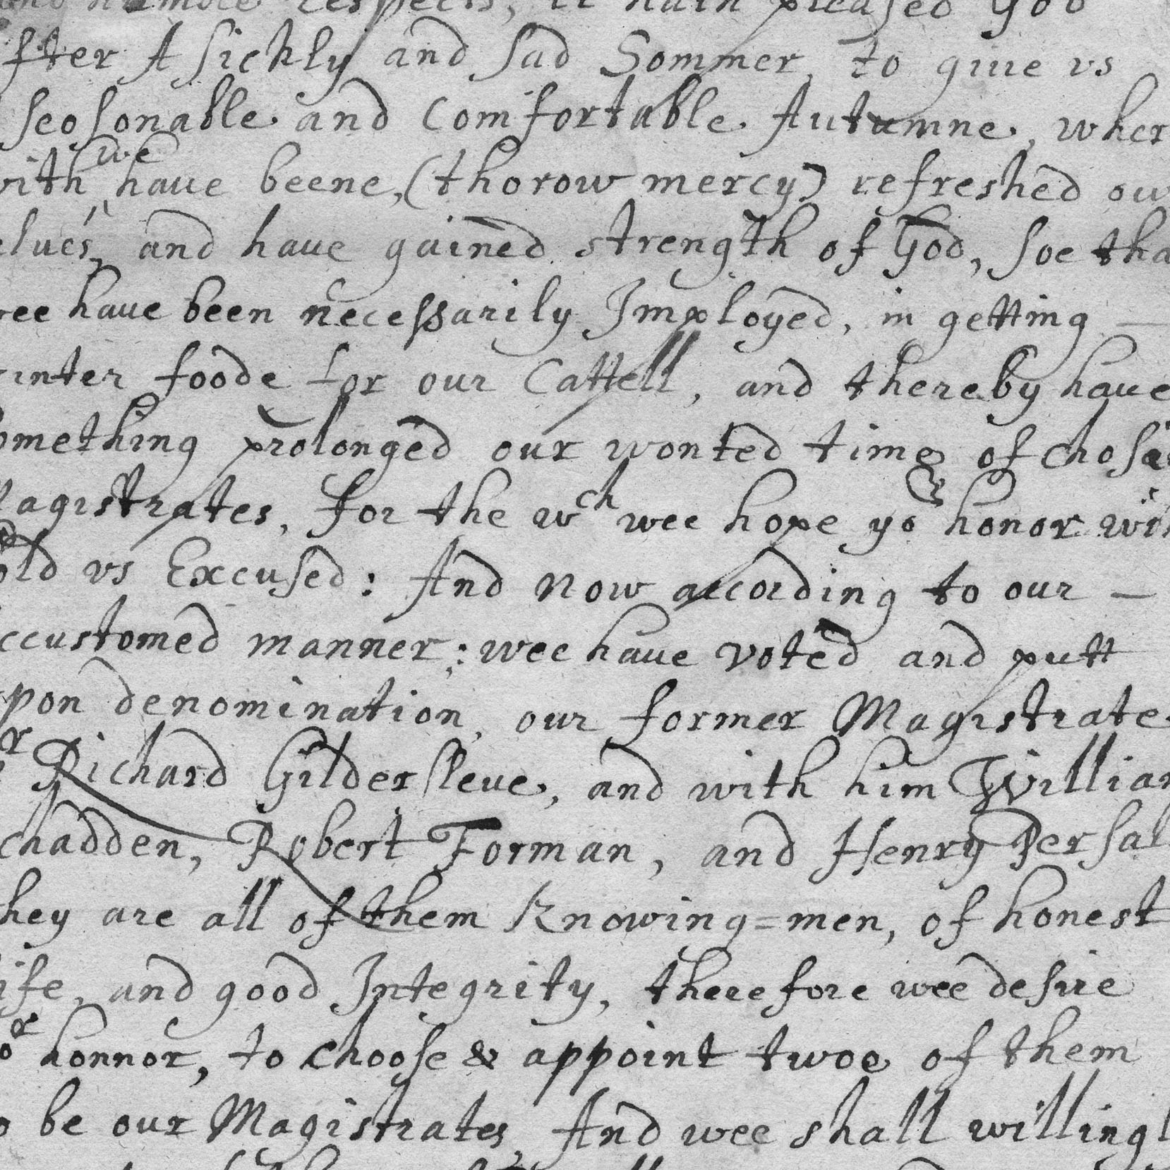 and humble respects, it hath pleased God
fter A sickly and sad Sommer, to giue vs
seosonable and Comfortable Autumne, wher
with we haue beene, (thorow mercy) refreshed ou
elues, and haue gained strength of God, soe tha
ee haue been necessarily Imployed, in getting —
inter foode for our Cattell, and thereby haue
omething prolonged our wonted time of chosi
agistrates, for the wch wee hope yor honor wi
old vs Excused: And now according to our —
ccustomed manner: wee haue voted and putt
pon denomination, our former Magistrate
r Richard Gildersleue, and with him Willia
chadden, Robert Forman, and Henry Persal
hey are all of them Knowing=men, of honest
ife, and good Integrity, therefore wee desire
or honnor, to choose & appoint twoe of them
o be our Magistrates, And wee shall willingl